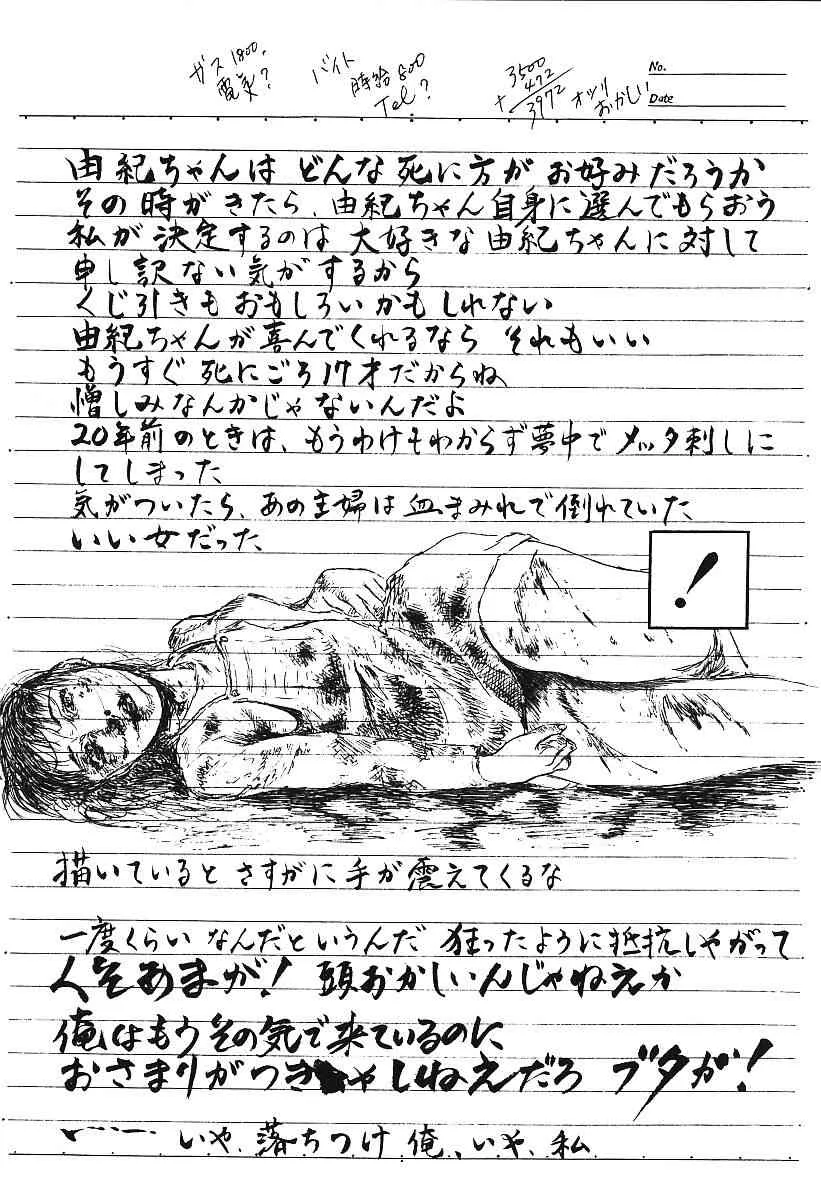 ガス1800,
電気?
バイト
時給800
Tel?
3500
+ 472
3972
オツリ
おかしい
No.
Date
由紀ちゃんは どんな死に方が お好みだろうか
その時がきたら、由紀ちゃん自身に選んでもらおう
私が決定するのは 大好きな由紀ちゃんに対して
申し訳ない気がするから
くじ引きもおもしろいかもしれない
由紀ちゃんが喜んでくれるなら それもいい
もうすぐ死にごろ17才だからね
憎しみなんかじゃないんだよ
20年前のときは、もうわけもわからず夢中でメッタ刺しに
してしまった
気がついたら、あの主婦は血まみれで倒れていた
いい女だった
!
描いていると さすがに手が震えてくるな
一度くらい なんだというんだ 狂ったように抵抗しやがって
人そあまが! 頭おかしいんじゃねえか
俺はもうその気で来ているのに
おさまりがつきゃしねえだろ ブタが!
いや、落ちつけ 俺、いや、私